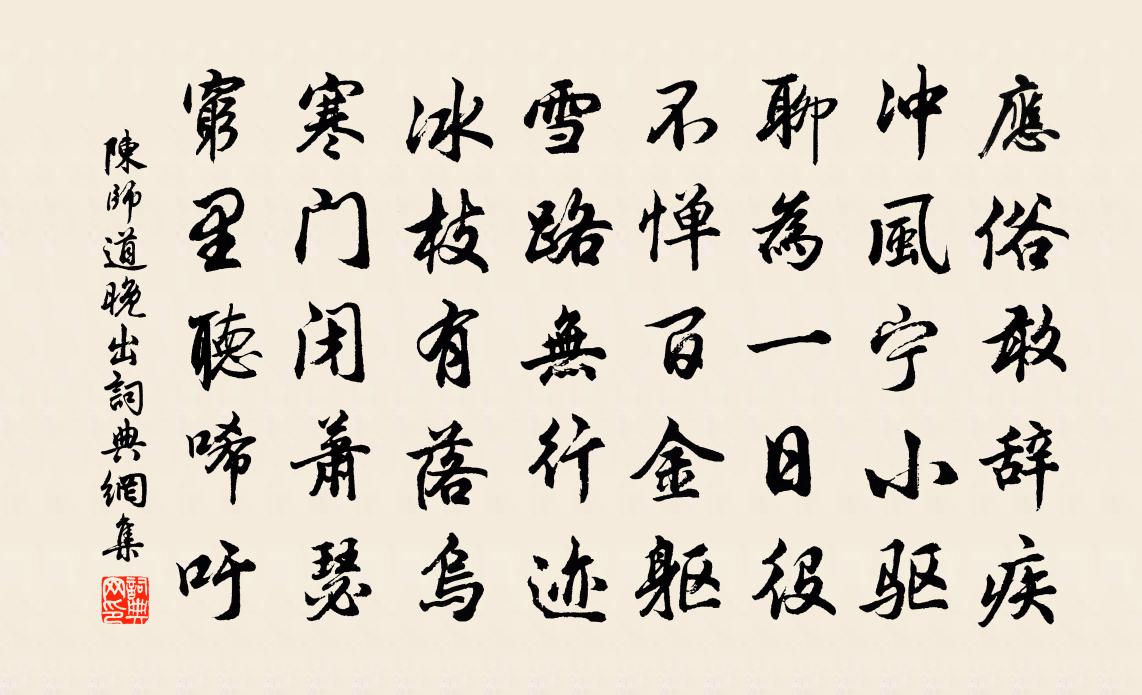 應俗敢辞疾
冲風宁小驱
聊為一日役
不惮百金躯
雪路無行迹
冰枝有落烏
寒门闭萧瑟
窮里聽唏吁
陳師道晚出詞典網集
詞典網印